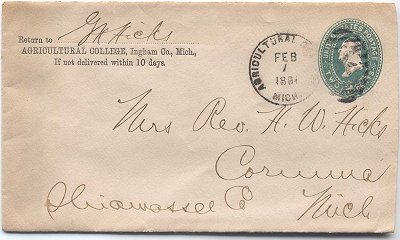 Return to G H Hicks
AGRICULTURAL COLLEGE, Ingham Co., Mich.,
If not delivered within 10 days.
AGRICULTURAL
FEB
1
1891
MICH.
Mrs Rev. H. W. Hicks
Corunna
Shiawassee Co Mich